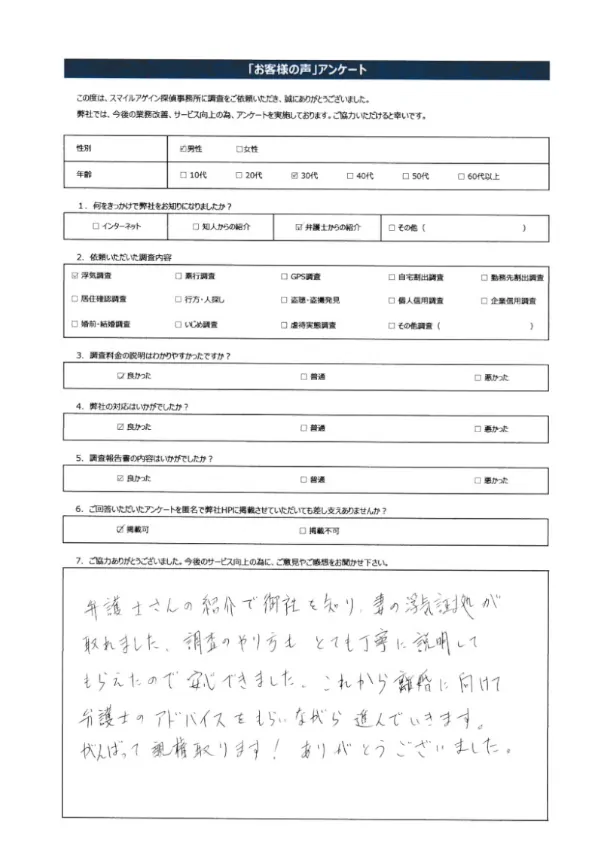 「お客様の声」アンケート
この度は、スマイルアゲイン探偵事務所に調査をご依頼いただき、誠にありがとうございました。
弊社では、今後の業務改善、サービス向上の為、アンケートを実施しております。ご協力いただけると幸いです。
性別 ☑男性 □女性
年齢 □ 10代 □ 20代 ☑ 30代 □ 40代 □ 50代 □ 60代以上
1. 何をきっかけで弊社をお知りになりましたか？
□ インターネット □ 知人からの紹介 ☑ 弁護士からの紹介 □ その他（ ）
2. 依頼いただいた調査内容
☑ 浮気調査 □ 素行調査 □ GPS調査 □ 自宅割出調査 □ 勤務先割出調査
□ 居住確認調査 □ 行方・人探し □ 盗聴・盗撮発見 □ 個人信用調査 □ 企業信用調査
□ 婚前・結婚調査 □ いじめ調査 □ 虐待実態調査 □ その他調査（ ）
3. 調査料金の説明はわかりやすかったですか？
☑ 良かった □ 普通 □ 悪かった
4. 弊社の対応はいかがでしたか？
☑ 良かった □ 普通 □ 悪かった
5. 調査報告書の内容はいかがでしたか？
☑ 良かった □ 普通 □ 悪かった
6. ご回答いただいたアンケートを匿名で弊社HPに掲載させていただいても差し支えありませんか？
☑ 掲載可 □ 掲載不可
7. ご協力ありがとうございました。今後のサービス向上の為に、ご意見やご感想をお聞かせ下さい。
弁護士さんの紹介で御社を知り、妻の浮気証拠が
取れました。調査のやり方も とても丁寧に説明して
もらえたので安心できました。これから離婚に向けて
弁護士のアドバイスをもらいながら進んでいきます。
がんばって親権取ります！ ありがとうございました。